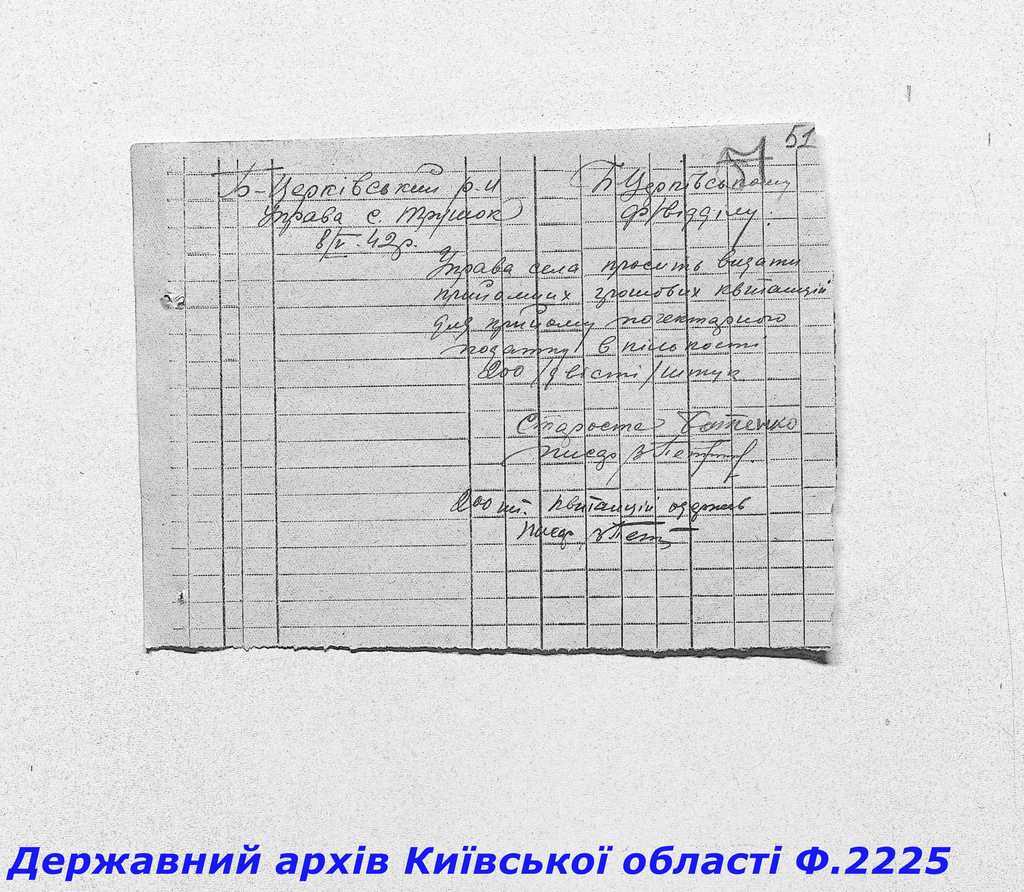 51
51
Б-Церківський р-н
Управа с. Трушок
8/V-42р.
Б Церківському
фвідділу.
Управа села просить видати
прийомних грошових квитанцій
для прийому погектарного
податку в кількості
200 /двісті/ штук
Староста
писар
200 шт. квитанцій одержав
Писар
Державний архів Київської області Ф.2225